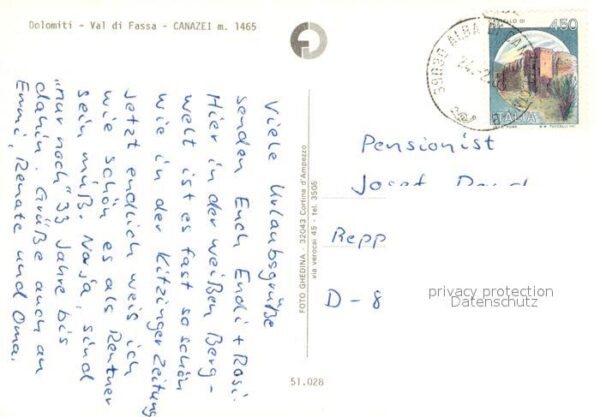 Dolomiti - Val di Fassa - CANAZEI m. 1465
450
ITALIA
Viele Urlaubsgrüße
senden Euch Endi + Rosi.
Hier in der weißen Berg-
welt ist es fast so schön
wie in der Kitzinger Zeitung
Jetzt endlich weiß ich
wie schön es als Rentner
sein muß. Naja, sind
"nur noch" 33 Jahre bis
dahin. Grüße auch an
Emmi, Renate und Oma.
FOTO GHEDINA - 32043 Cortina d'Ampezzo
via verocai 45 - tel. 3505
Pensionist
Josef
Repp
D-8
privacy protection
Datenschutz
51.028